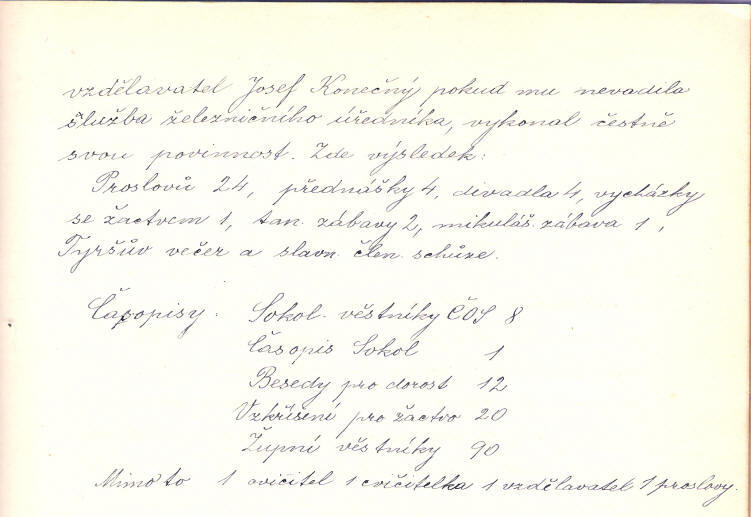 vzdělavatel Josef Konečný pokud mu nevadila
služba železničního úředníka, vykonal čestně
svou povinnost. Zde výsledek:
Proslovů 24, přednášky 4, divadla 4, vycházky
se žactvem 1, tan. zábavy 2, mikuláš. zábava 1,
Tyršův večer a slavn. člen. schůze.
Časopisy. Sokol. věstníky ČOS 8
Časopis Sokol 1
Besedy pro dorost 12
Vzkříšení pro žactvo 20
Župní věstníky 90
Mimo to 1 cvičitel 1 cvičitelka 1 vzdělavatel 1 proslovy.